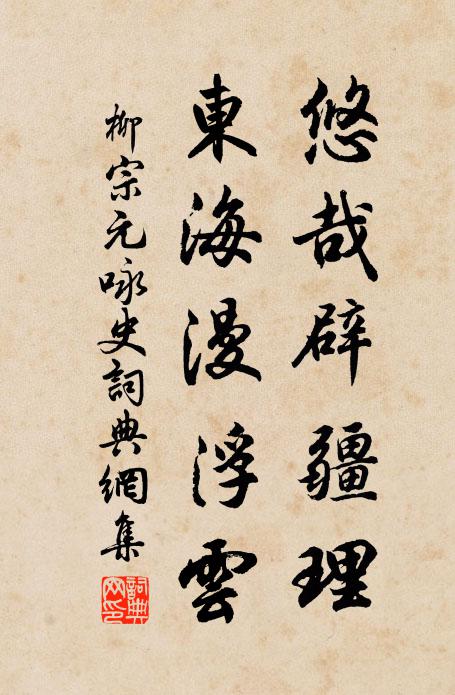 悠哉辟疆理
東海漫浮雲
柳宗元咏史詞典網集
詞典
网印